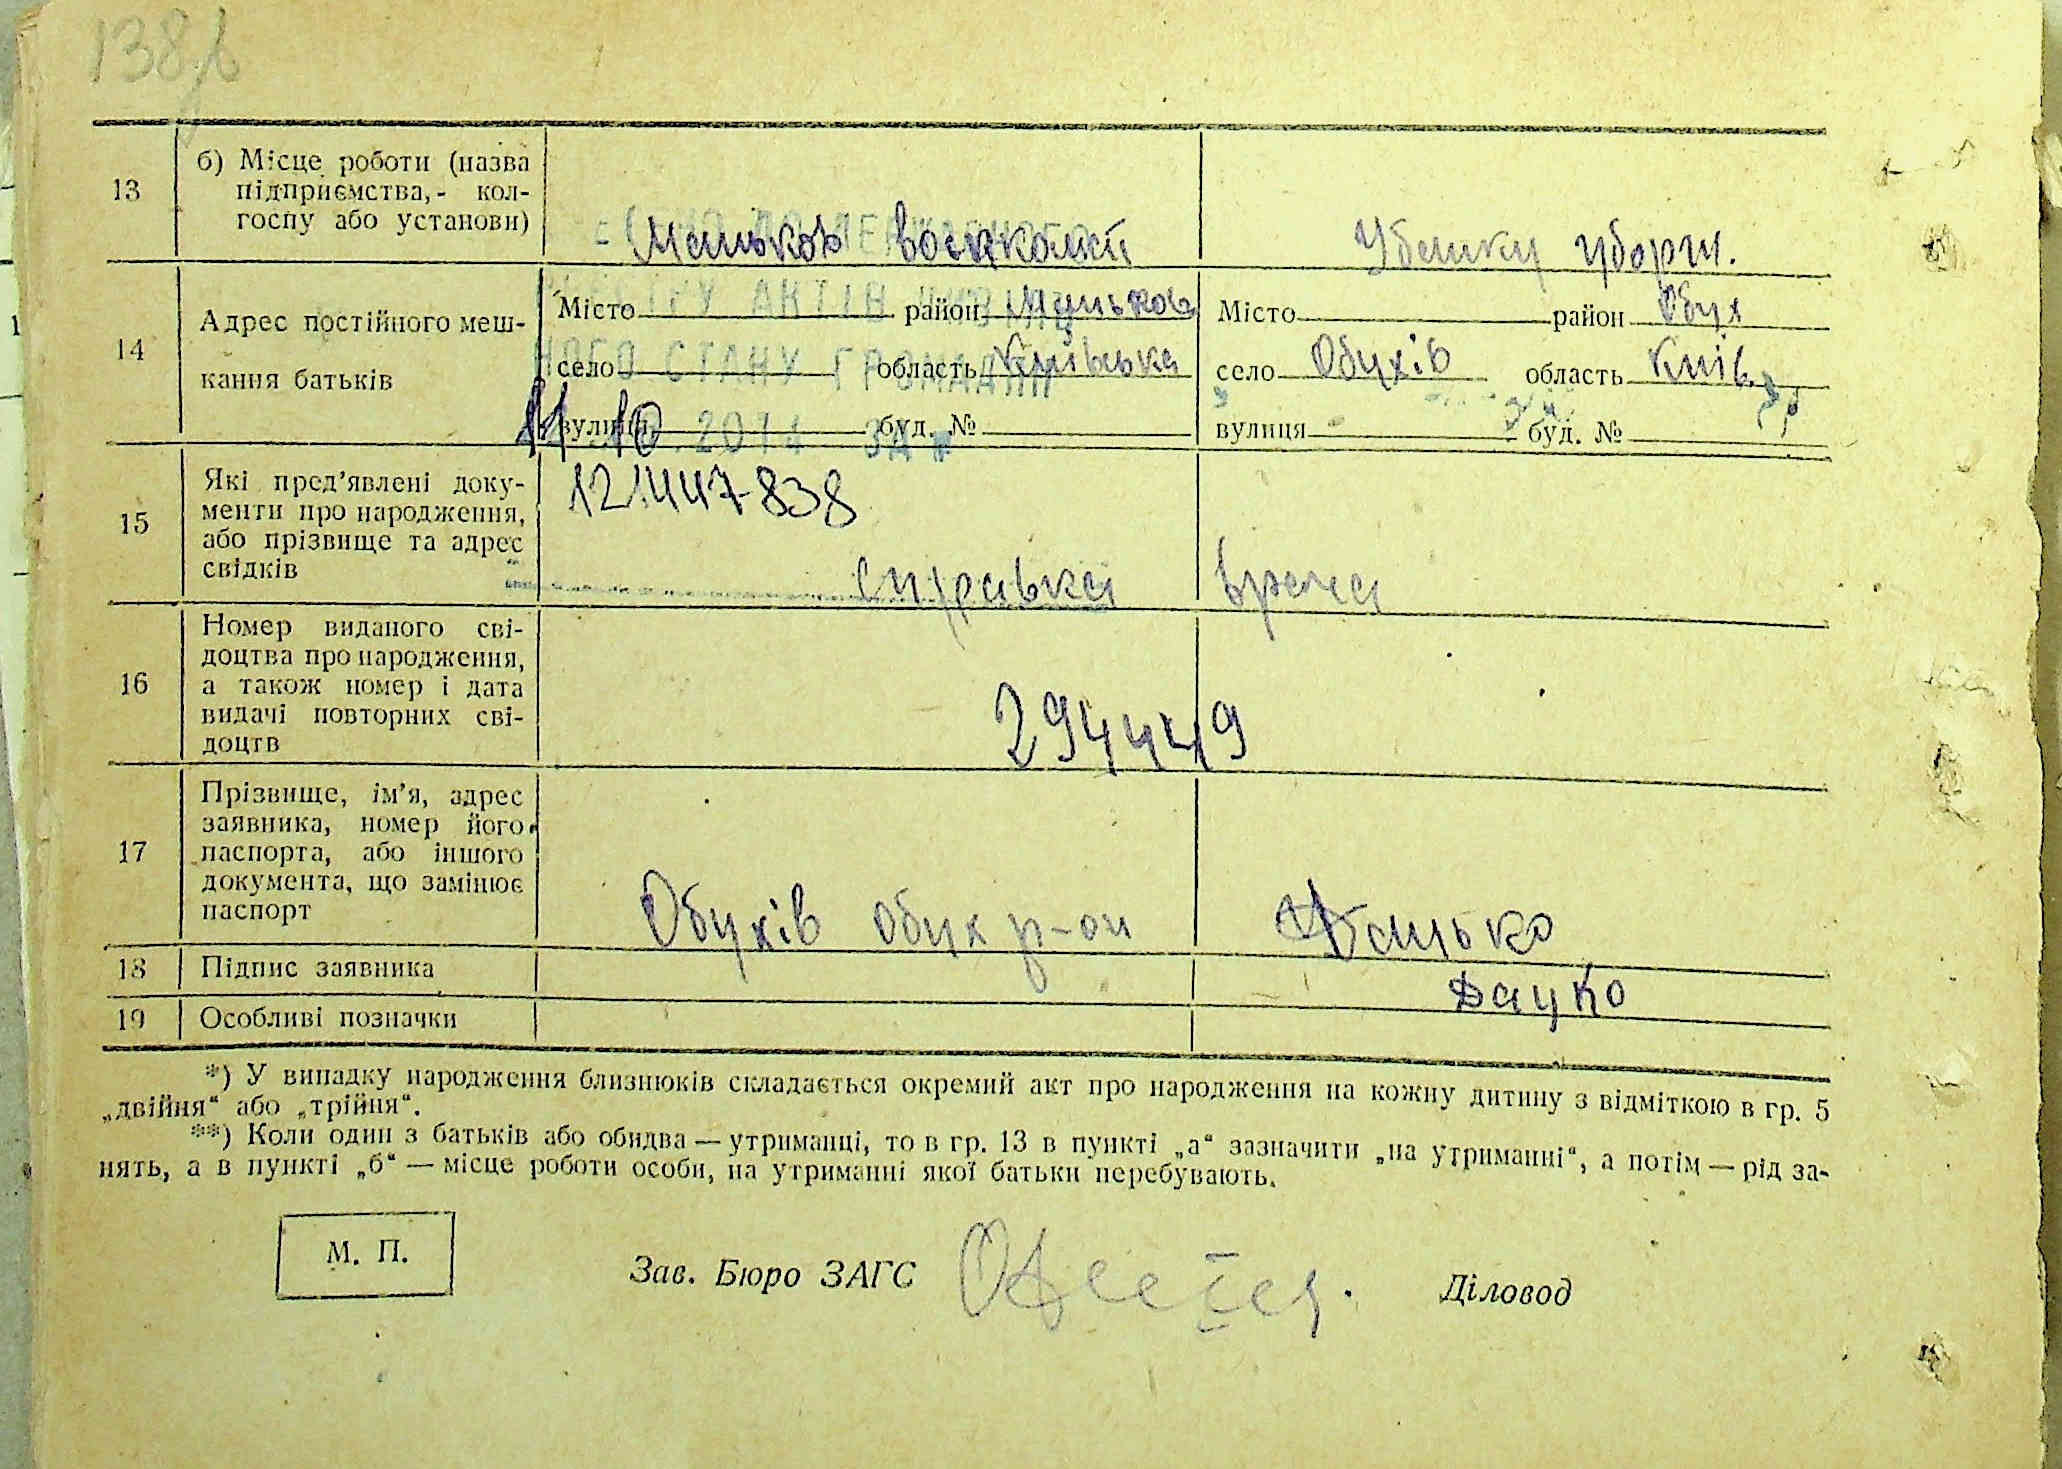 138
13
б) Місце роботи (назва
підприємства,- кол-
госпу або установи)
Маньков воєнкомат
уборщ.
14
Адрес постійного меш-
кання батьків
Місто район Маньков
село область Київська
вулиця буд. №
Місто район Обух
село Обухів область Київ
вулиця буд. №
РЕЄСТРУ АКТІВ ЦИВІЛЬ
НОГО СТАНУ ГРОМАДЯН
11 10 2014
15
Які пред’явлені доку-
менти про народження,
або прізвище та адрес
свідків
121447838
справка врача
16
Номер виданого сві-
доцтва про народження,
а також номер і дата
видачі повторних сві-
доцтв
294449
17
Прізвище, ім’я, адрес
заявника, номер його
паспорта, або іншого
документа, що замінює
паспорт
Обухів Обух р-он
18
Підпис заявника
Дацко
19
Особливі позначки
*) У випадку народження близнюків складається окремий акт про народження на кожну дитину з відміткою в гр. 5
„двійня“ або „трійня“.
**) Коли один з батьків або обидва — утриманці, то в гр. 13 в пункті „а“ зазначити „на утриманні“, а потім — рід за-
нять, а в пункті „б“ — місце роботи особи, на утриманні якої батьки перебувають.
М. П.
Зав. Бюро ЗАГС
Діловод